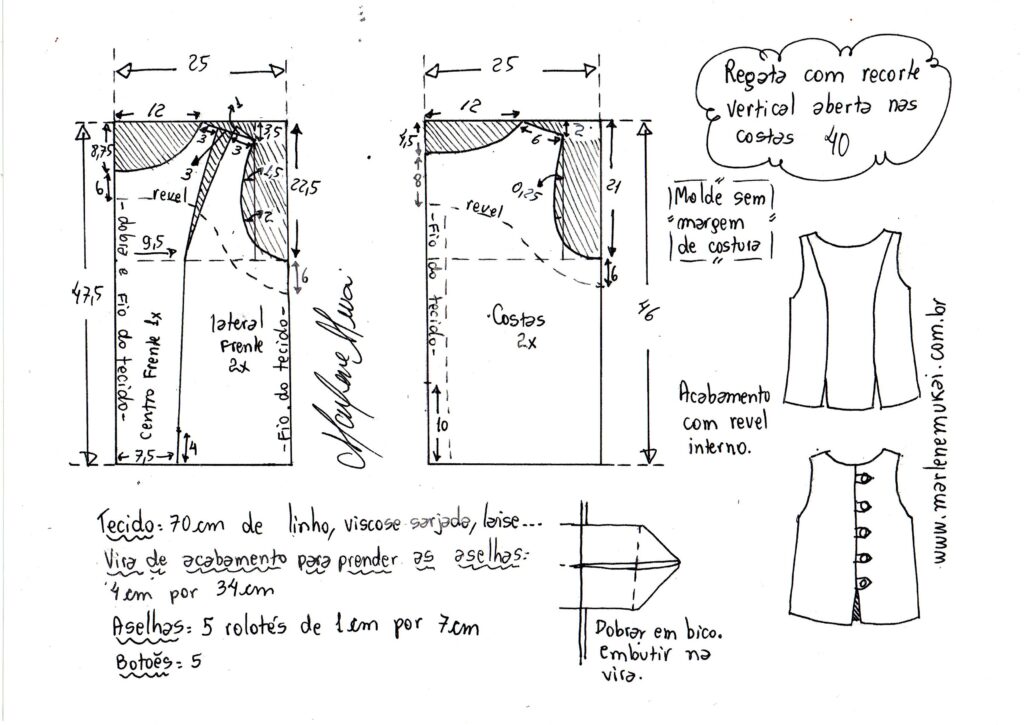 25
12
1
3
3
3
3,5
8,75
6
1,5
2
22,5
6
revel
9,5
47,5
-dobra e Fio do tecido-
Centro Frente 1x
lateral
Frente
2x
-Fio do tecido-
7,5
4
Marlene Mukai
25
12
6
2
1,5
8
0,25
21
6
revel
-Fio do tecido-
Costas
2x
10
46
Regata com recorte
vertical aberta nas
costas 40
Molde sem
margem
de costura
Acabamento
com revel
interno.
www.marlenemukai.com.br
Tecido: 70 cm de linho, viscose sarjada, laise...
Vira de acabamento para prender as aselhas:
4cm por 34cm
Aselhas: 5 rolotés de 1cm por 7cm
Botões: 5
Dobrar em bico.
embutir na
vira.